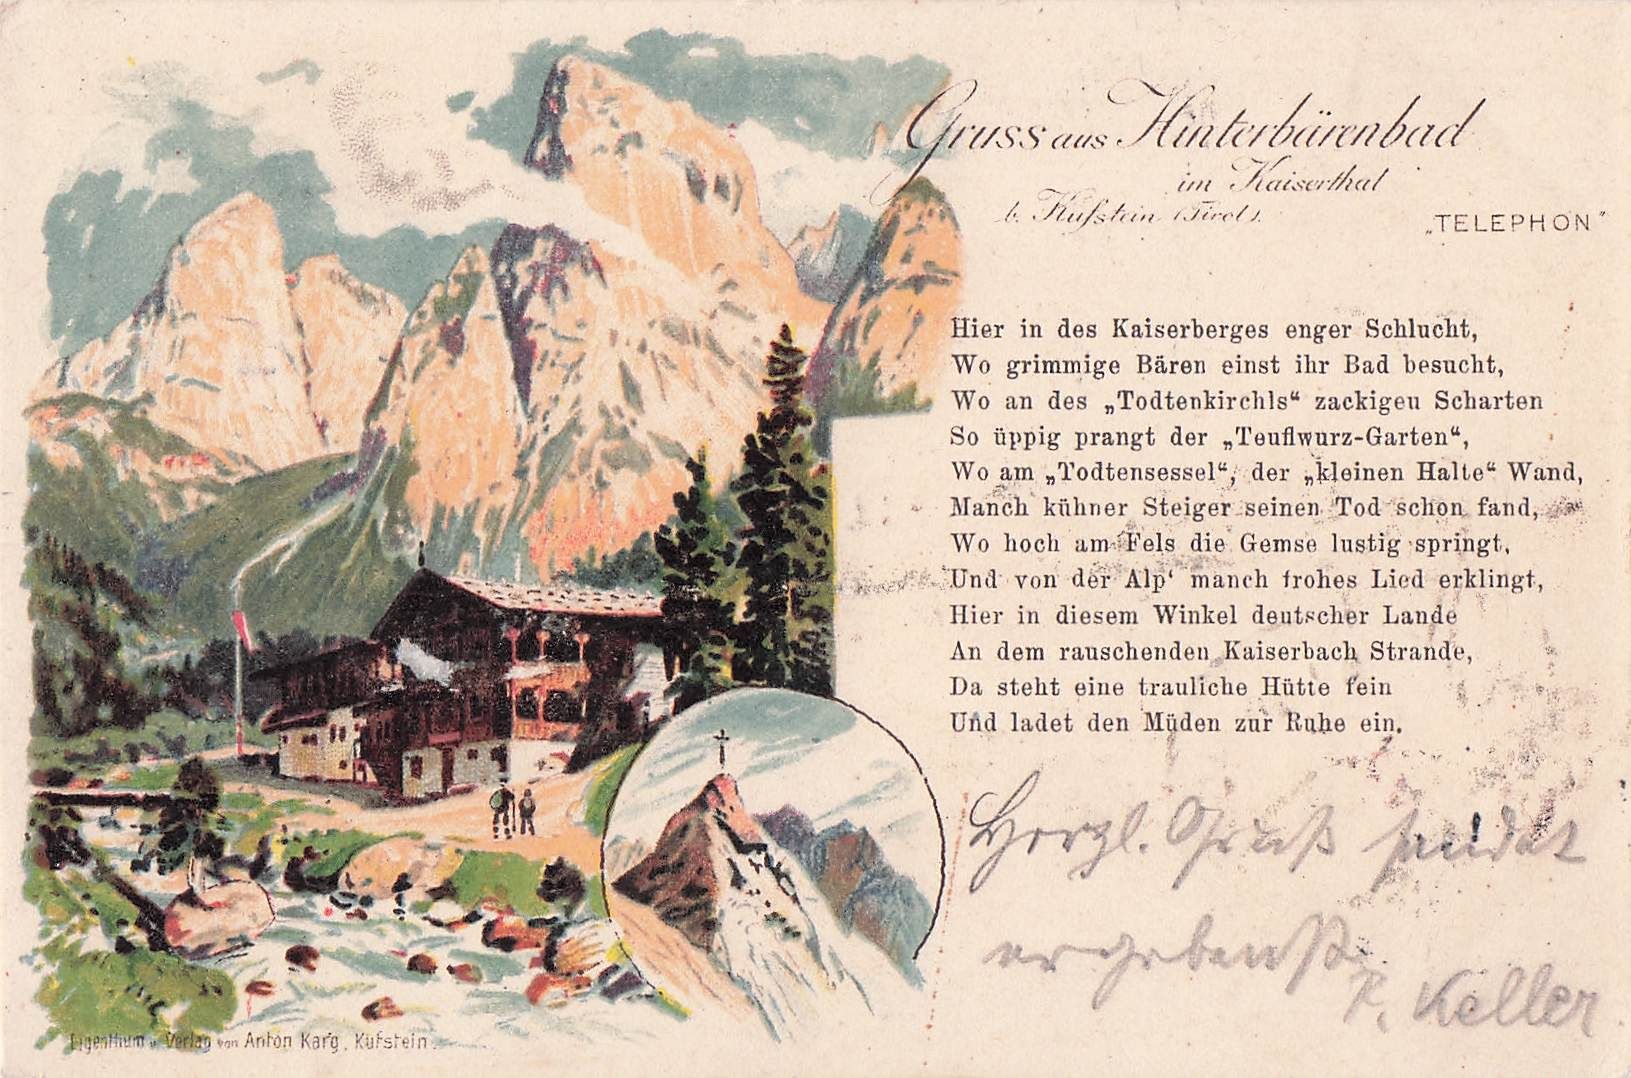 Gruss aus Hinterbärenbad
im Kaiserthal
b. Kufstein (Tirol).
„TELEPHON"
Hier in des Kaiserberges enger Schlucht,
Wo grimmige Bären einst ihr Bad besucht,
Wo an des „Todtenkirchls“ zackigen Scharten
So üppig prangt der „Teuflwurz-Garten“,
Wo am „Todtensessel“, der „kleinen Halte“ Wand,
Manch kühner Steiger seinen Tod schon fand,
Wo hoch am Fels die Gemse lustig springt,
Und von der Alp‘ manch frohes Lied erklingt,
Hier in diesem Winkel deutscher Lande
An dem rauschenden Kaiserbach Strande,
Da steht eine trauliche Hütte fein
Und ladet den Müden zur Ruhe ein.
Herzl. Gruß sendet
ergebenst
P. Keller
Eigenthum u. Verlag von Anton Karg, Kufstein.